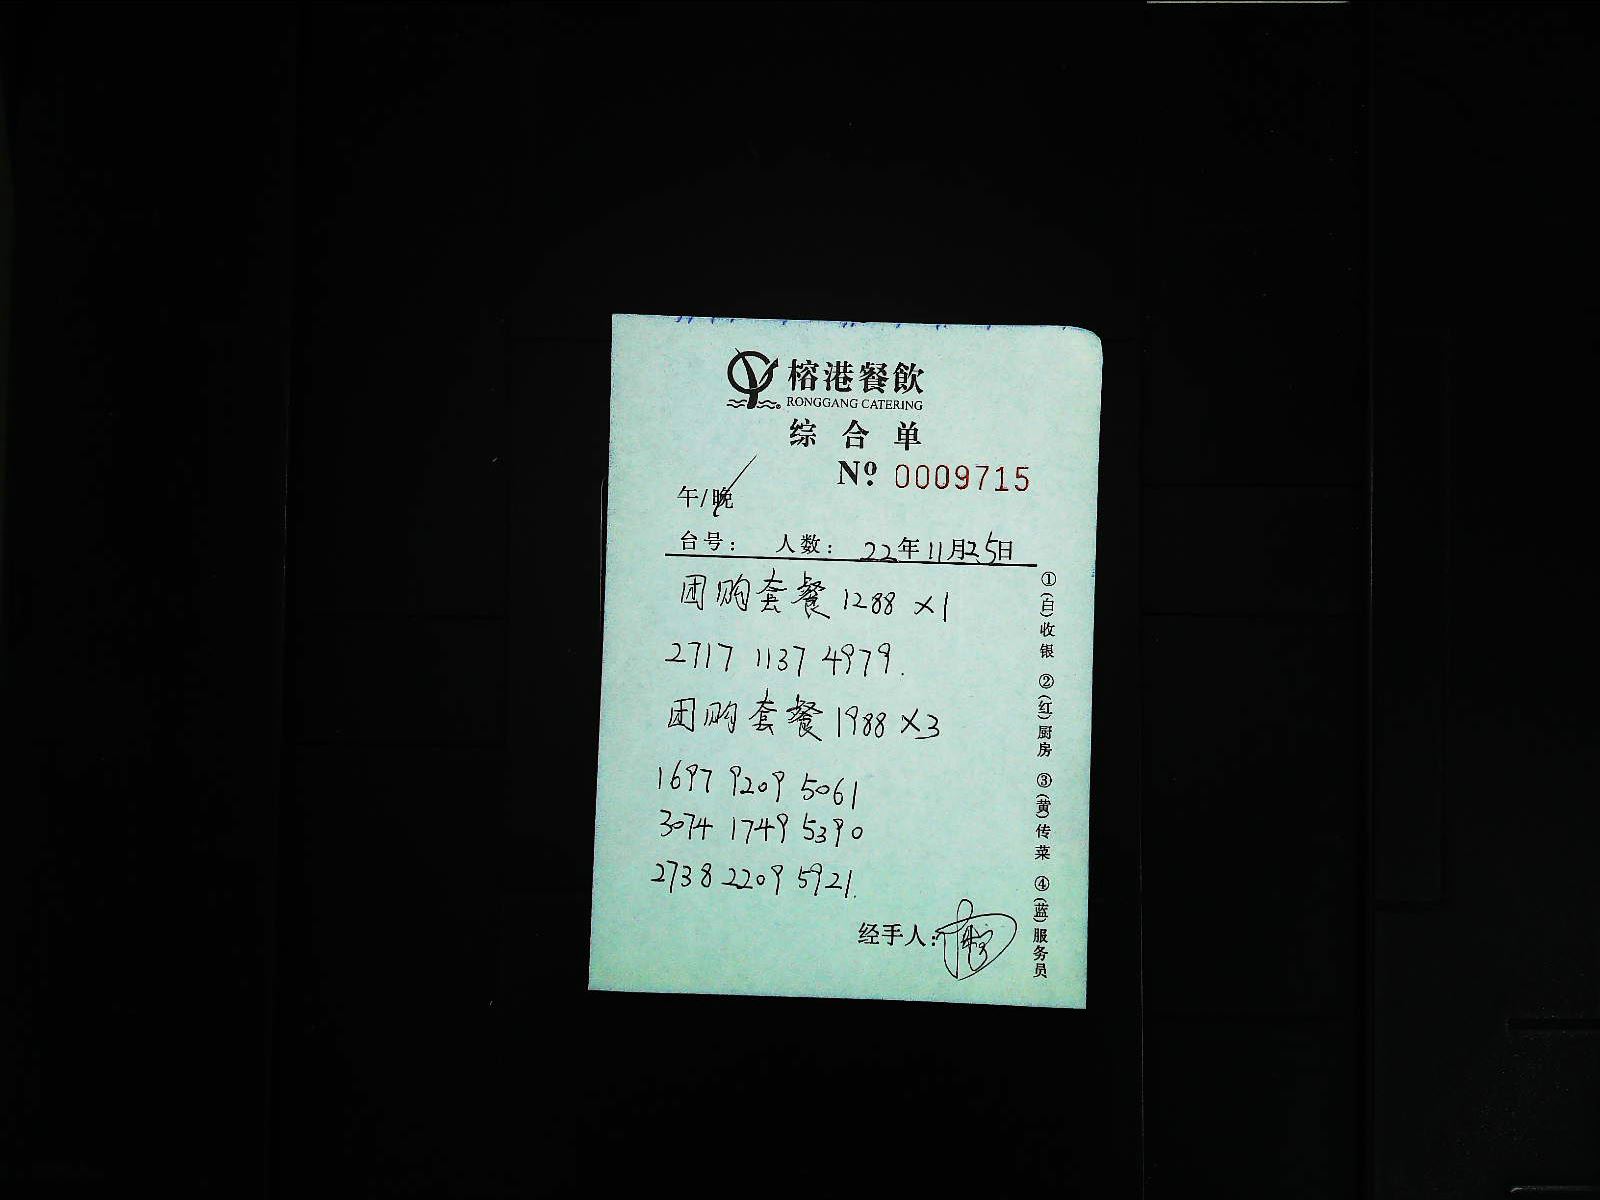 榕港餐飲
RONGGANG CATERING
综合单
Nº 0009715
午/晚
台号： 人数： 22年11月25日
团购套餐1288×1
2717 1137 4979.
团购套餐1988×3
1697 9209 5061
3074 1749 5390
2738 2209 5921.
经手人：
①(白)收银 ②(红)厨房 ③(黄)传菜 ④(蓝)服务员